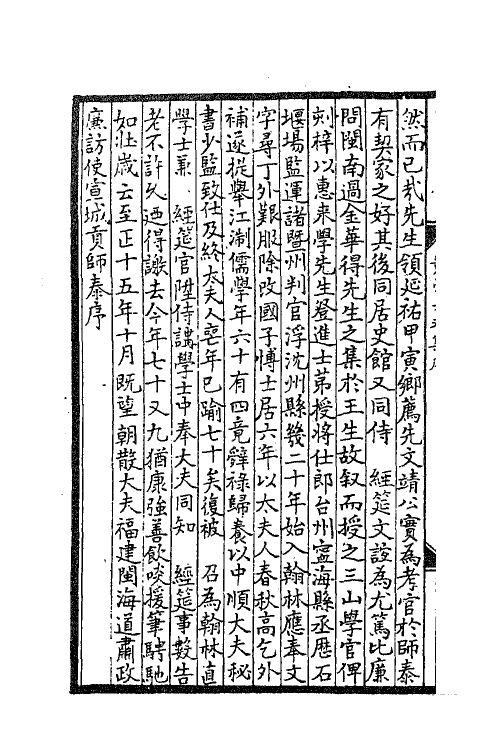 然而已哉先生領延祐甲寅鄉薦先文靖公實為考官於師泰
有契家之好其後同居史館又同侍　經筵文誼為尤篤比廉
問閩南過金華得先生之集於王生故叙而授之三山學官俾
刻梓以惠來學先生登進士第授將仕郎台州寧海縣丞歷石
堰場監運諸暨州判官浮沈州縣幾二十年始入翰林應奉文
字尋丁外艱服除改國子博士居六年以太夫人春秋高乞外
補遂提舉江浙儒學年六十有四竟辭祿歸養以中順大夫秘
書少監致仕及終太夫人喪年已踰七十矣復被　召為翰林直
學士兼　經筵官陞侍講學士中奉大夫同知　經筵事數告
老不許久迺得謝去今年七十又九猶康強善飲啖援筆騁馳
如壯歲云至正十五年十月既望朝散大夫福建閩海道肅政
廉訪使宣城貢師泰序